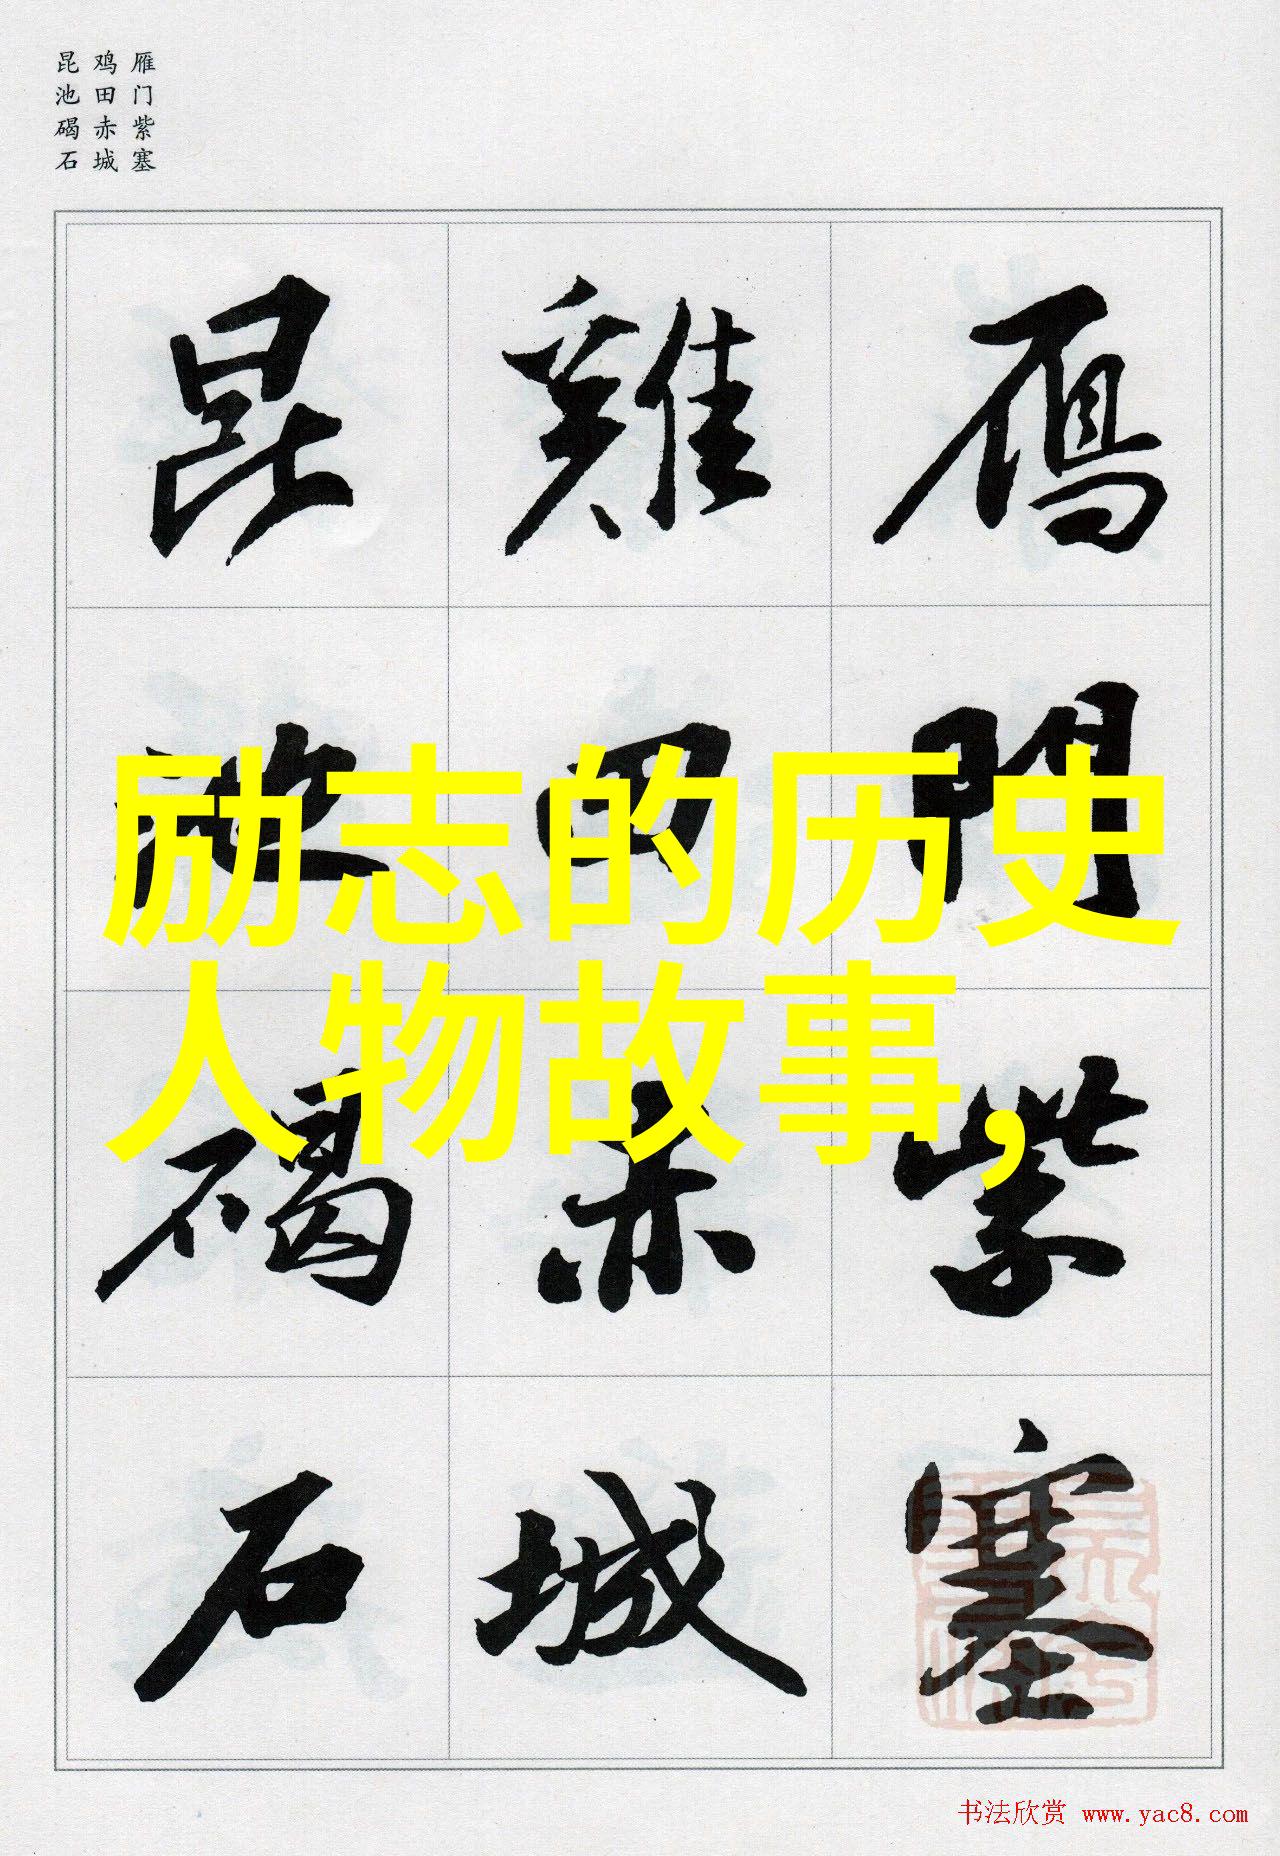 雁门紫塞
鸡田赤城
昆池碣石
雁門紫塞
雞田赤城
昆池碣石
励志的历史
人物故事,
书法欣赏 www.yac8.com